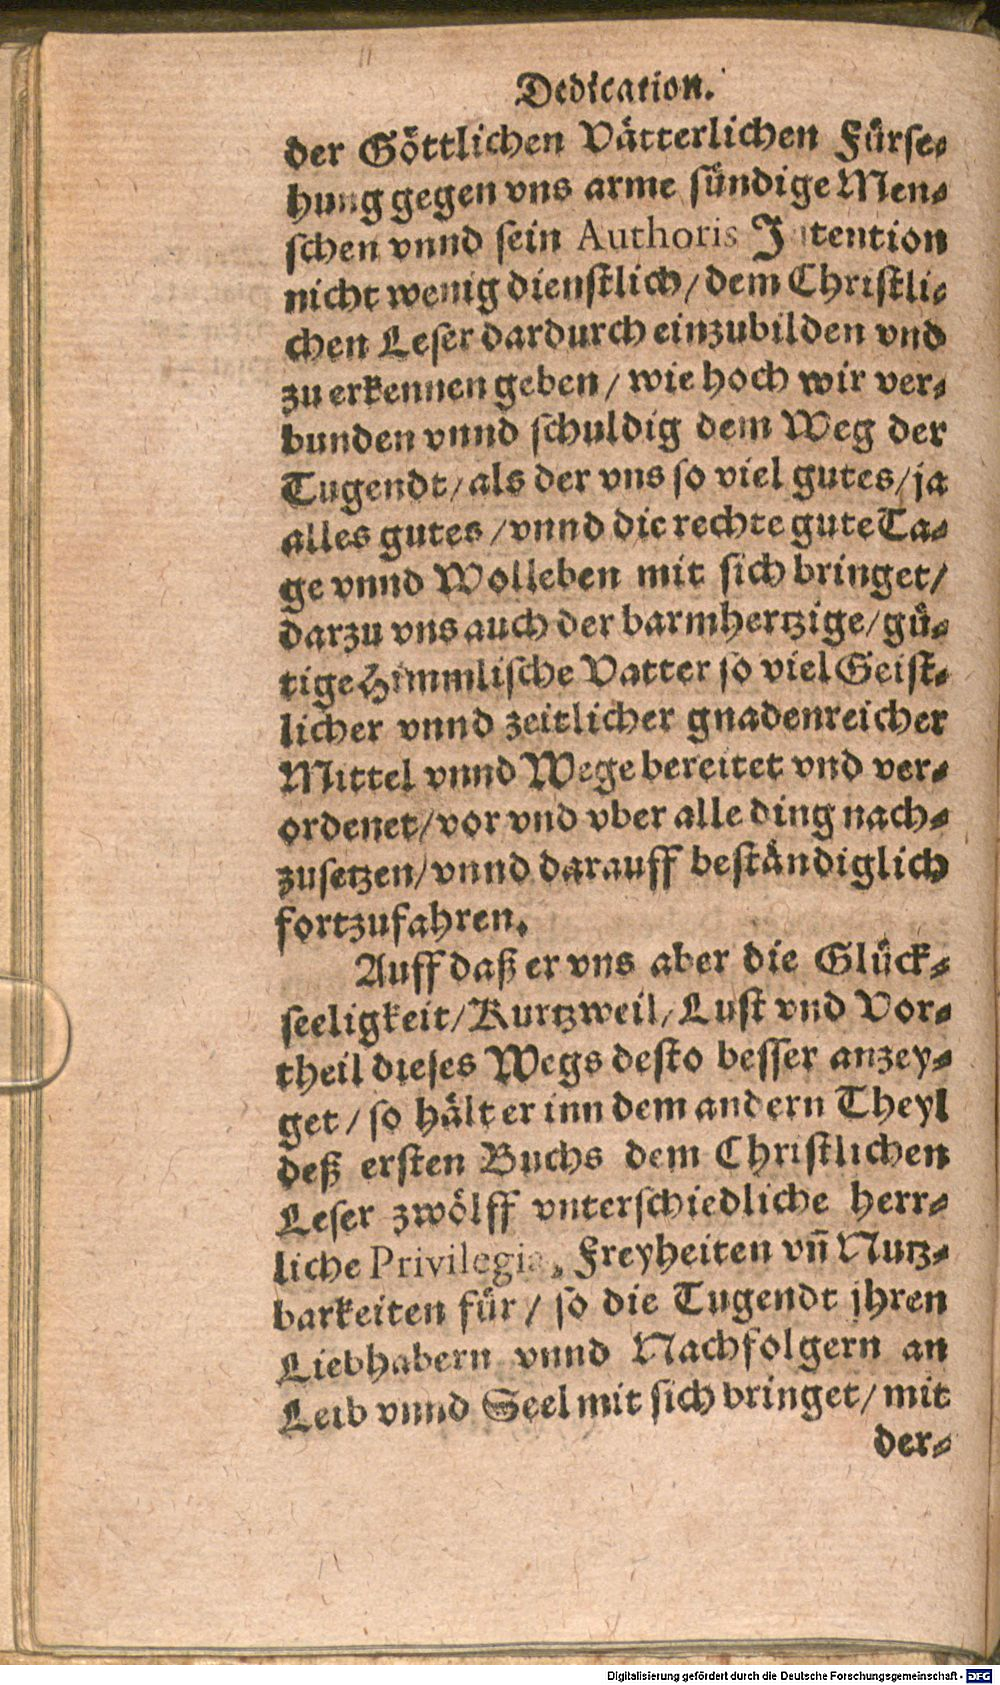 Dedication.
der Göttlichen Vätterlichen Fürse-
hung gegen vns arme sündige Men-
schen vnnd sein Authoris
nicht wenig dienstlich/ dem Christli-
chen Leser dardurch einzubilden vnd
zu erkennen geben/ wie hoch wir ver-
bunden vnnd schuldig dem Weg der
Tugendt/ als der vns so viel gutes/ ja
alles gutes/ vnnd die rechte gute Ta-
ge vnnd Wolleben mit sich bringet/
darzu vns auch der barmhertzige/ gü-
tige Himmlische Vatter so viel Geist-
licher vnnd zeitlicher gnadenreicher
Mittel vnnd Wege bereitet vnd ver-
ordenet/ vor vnd vber alle ding nach-
zusetzen/ vnnd darauff beständiglich
fortzufahren.
Auff daß er vns aber die Glück-
seeligkeit/ Kurtzweil/ Lust vnd Vor-
theil dieses Wegs desto besser anzey-
get/ so hält er inn dem andern Theyl
deß ersten Buchs dem Christlichen
Leser zwölff vnterschiedliche herr-
liche Freyheiten vn̄ Nutz-
barkeiten für/ so die Tugendt jhren
Liebhabern vnnd Nachfolgern an
Leib vnnd Seel mit sich bringet/ mit
der-
Digitalisierung gefördert durch die Deutsche Forschungsgemeinschaft - DFG